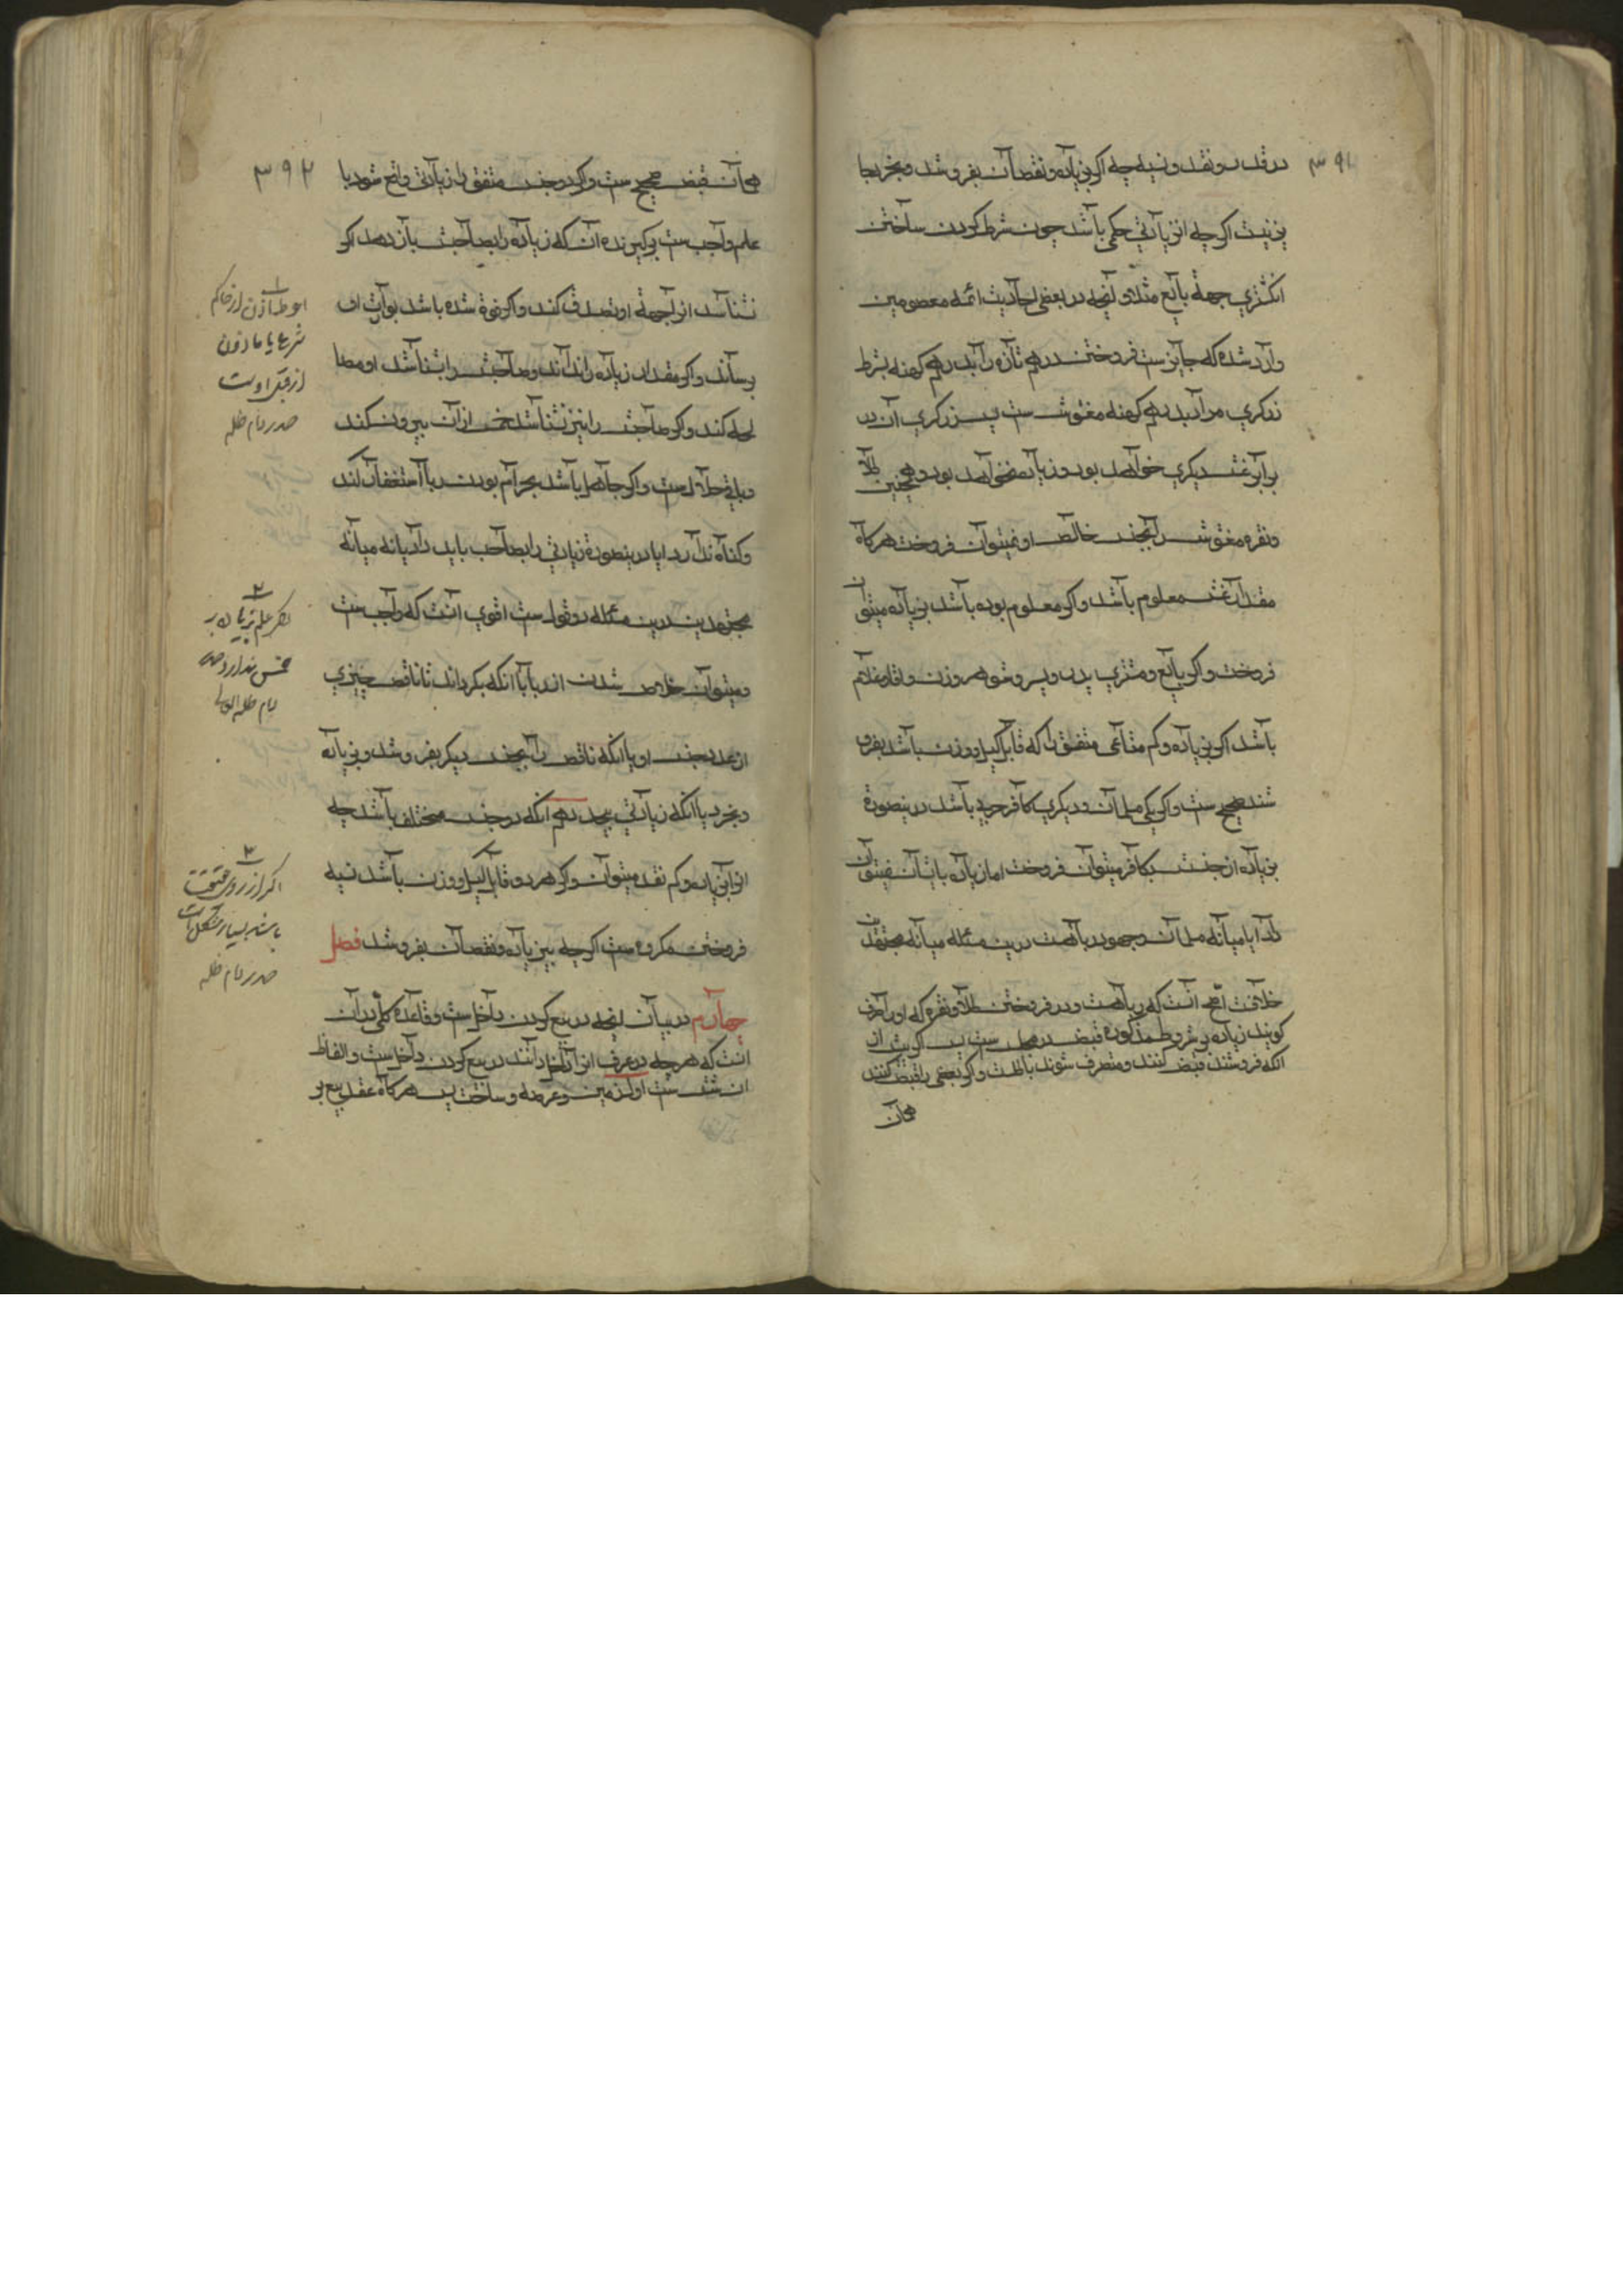 ۳۹۱
در قدر و نقد و نسیه چه اگر بزیاده و نقصان بفروشد و بخرد جا
یز نیست اگر چه ان زیادتی حکمی باشد چون شرط کردن ساختن
انگشتری جهة بایع مثلا و آنچه در بعضی احادیث ائمه معصومین
وارد شده که جایزست فروختن درهم تازه را بدرهم کهنه بشرط
زرکری مراد بدرهم کهنه مغشوشست پس زرکری آن در
برابر غش دیکری خواهد بود و زیاده نخواهد بود و همچنین طلا
و نقره مغشوش را بجنس خالص او نمیتوان فروخت هرکاه
مقدار غش معلوم باشد و اکر معلوم بوده باشد بزیاده میتوان
فروخت و اکر بایع و مشتری پدر و پسر و شوهر و زن و اقا و غلام
باشد اکر بزیاده و کم متاعی متفق را که قابل کیل و وزن باشد بفرو
شند صحیح ست و اکر یکی مسلمان و دیکری کافر حربی باشد درینصورة
بزیاده از جنسش بکافر میتوان فروخت اما زیاده بایشان نمیتوان
داد ایا میانه مسلمان و جهود ربا هست درین مسئله میانه مجتهدان
خلافست اصح آنست که ربا هست و در فروختن طلا و نقره که اورا صرف
کویند زیاده بر شروط مذکوره قبض در مجلس ست پس اکر پیش از
انکه فروشنده قبض کنند و متفرق شوند باطلست و اکر بعضی را قبض کنند
همان
۳۹۲
همان قبض صحیح ست و اکر در جنس متفق را زیادتی واقع شود با
علم واجب ست بر کیرنده آن که زیاده را بصاحبش باز دهد اکر
نشناسد از جهة او تصدق کند و اکر فوة شده باشد بوارث او
رساند و اکر مقدار زیاده را نداند و صاحبش را بشناسد او مصا
لحه کند و اکر صاحبش را نیز نشناسد خمس از آن بیرون کند
و باقی حلال ست و اکر جاهل باشد بحرام بودن ربا استغفار کند
و کناه ندارد ایا درینصورة زیادتی را بصاحب باید داد یا نه میانه
مجتهدین درین مسئله دو قول ست اقوی آنست که واجب ست
و میتوان خلاص شدن از ربا باانکه بکرداند تا ناقص چیزی
از غیر جنس او یا انکه ناقص را بجنس دیکر بفروشد و بزیاده
و بخرد یا انکه زیادتی بخشد دهم انکه در جنس مختلف باشد چه
انرا بزیاده و کم نقد میتوان و اکر هر دو قابل کیل و وزن باشد نسیه
فروختن مکروه ست اکر چه بزیاده و نقصان بفروشد فصل
چهارم در بیان آنچه در بیع کردن داخل ست و قاعده کلی در آن
انست که هر چه در عرف انرا داخل دانند در بیع کردن داخل ست و الفاظ
ان شش ست اول زمین و عرصه و ساخت پس هرکاه عقد بیع بر
۱
احوط اذن از حاکم
شرع یا ماذون
از قبل اوست
صدر دام ظله
۲
خمس ندارد صدر
دام ظله العالی
۳
اکر از روی حقیقت
باشد بسیار مشکل است
صدر دام ظله